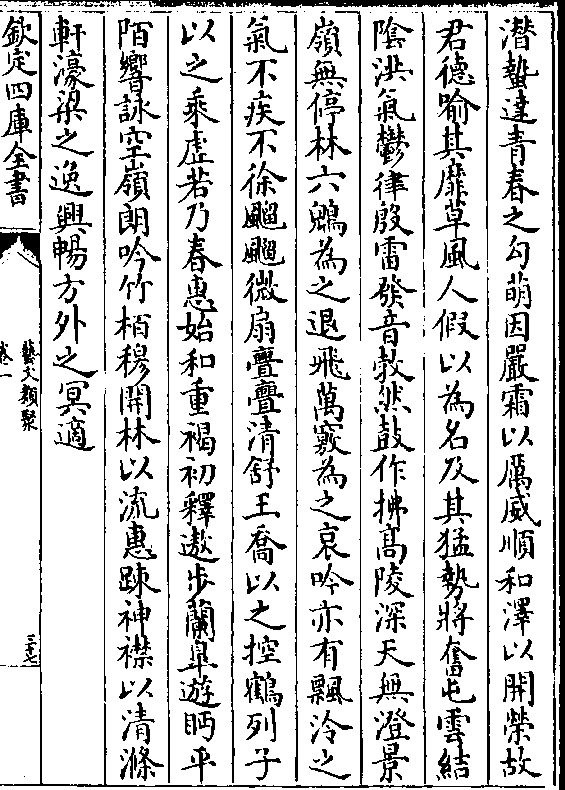 潜蟄達青春之勾萌因嚴霜以厲威順和澤以開榮故
君德喻其靡草風人假以為名及其猛勢將奮屯雲結
陰洪氣鬱律殷雷發音㪍然鼓作拂髙陵深天無澄景
嶺無停林六鷁為之退飛萬竅為之哀吟亦有飄泠之
氣不疾不徐飀飀微扇亹亹清舒王喬以之控鶴列子
以之乘虛若乃春惠始和重褐初釋遨步蘭臯遊眄平
陌響詠空嶺朗吟竹栢穆開林以流惠踈神襟以清滌
軒濠梁之逸興暢方外之冥適
欽定四庫全書
藝文類聚
卷一
三七